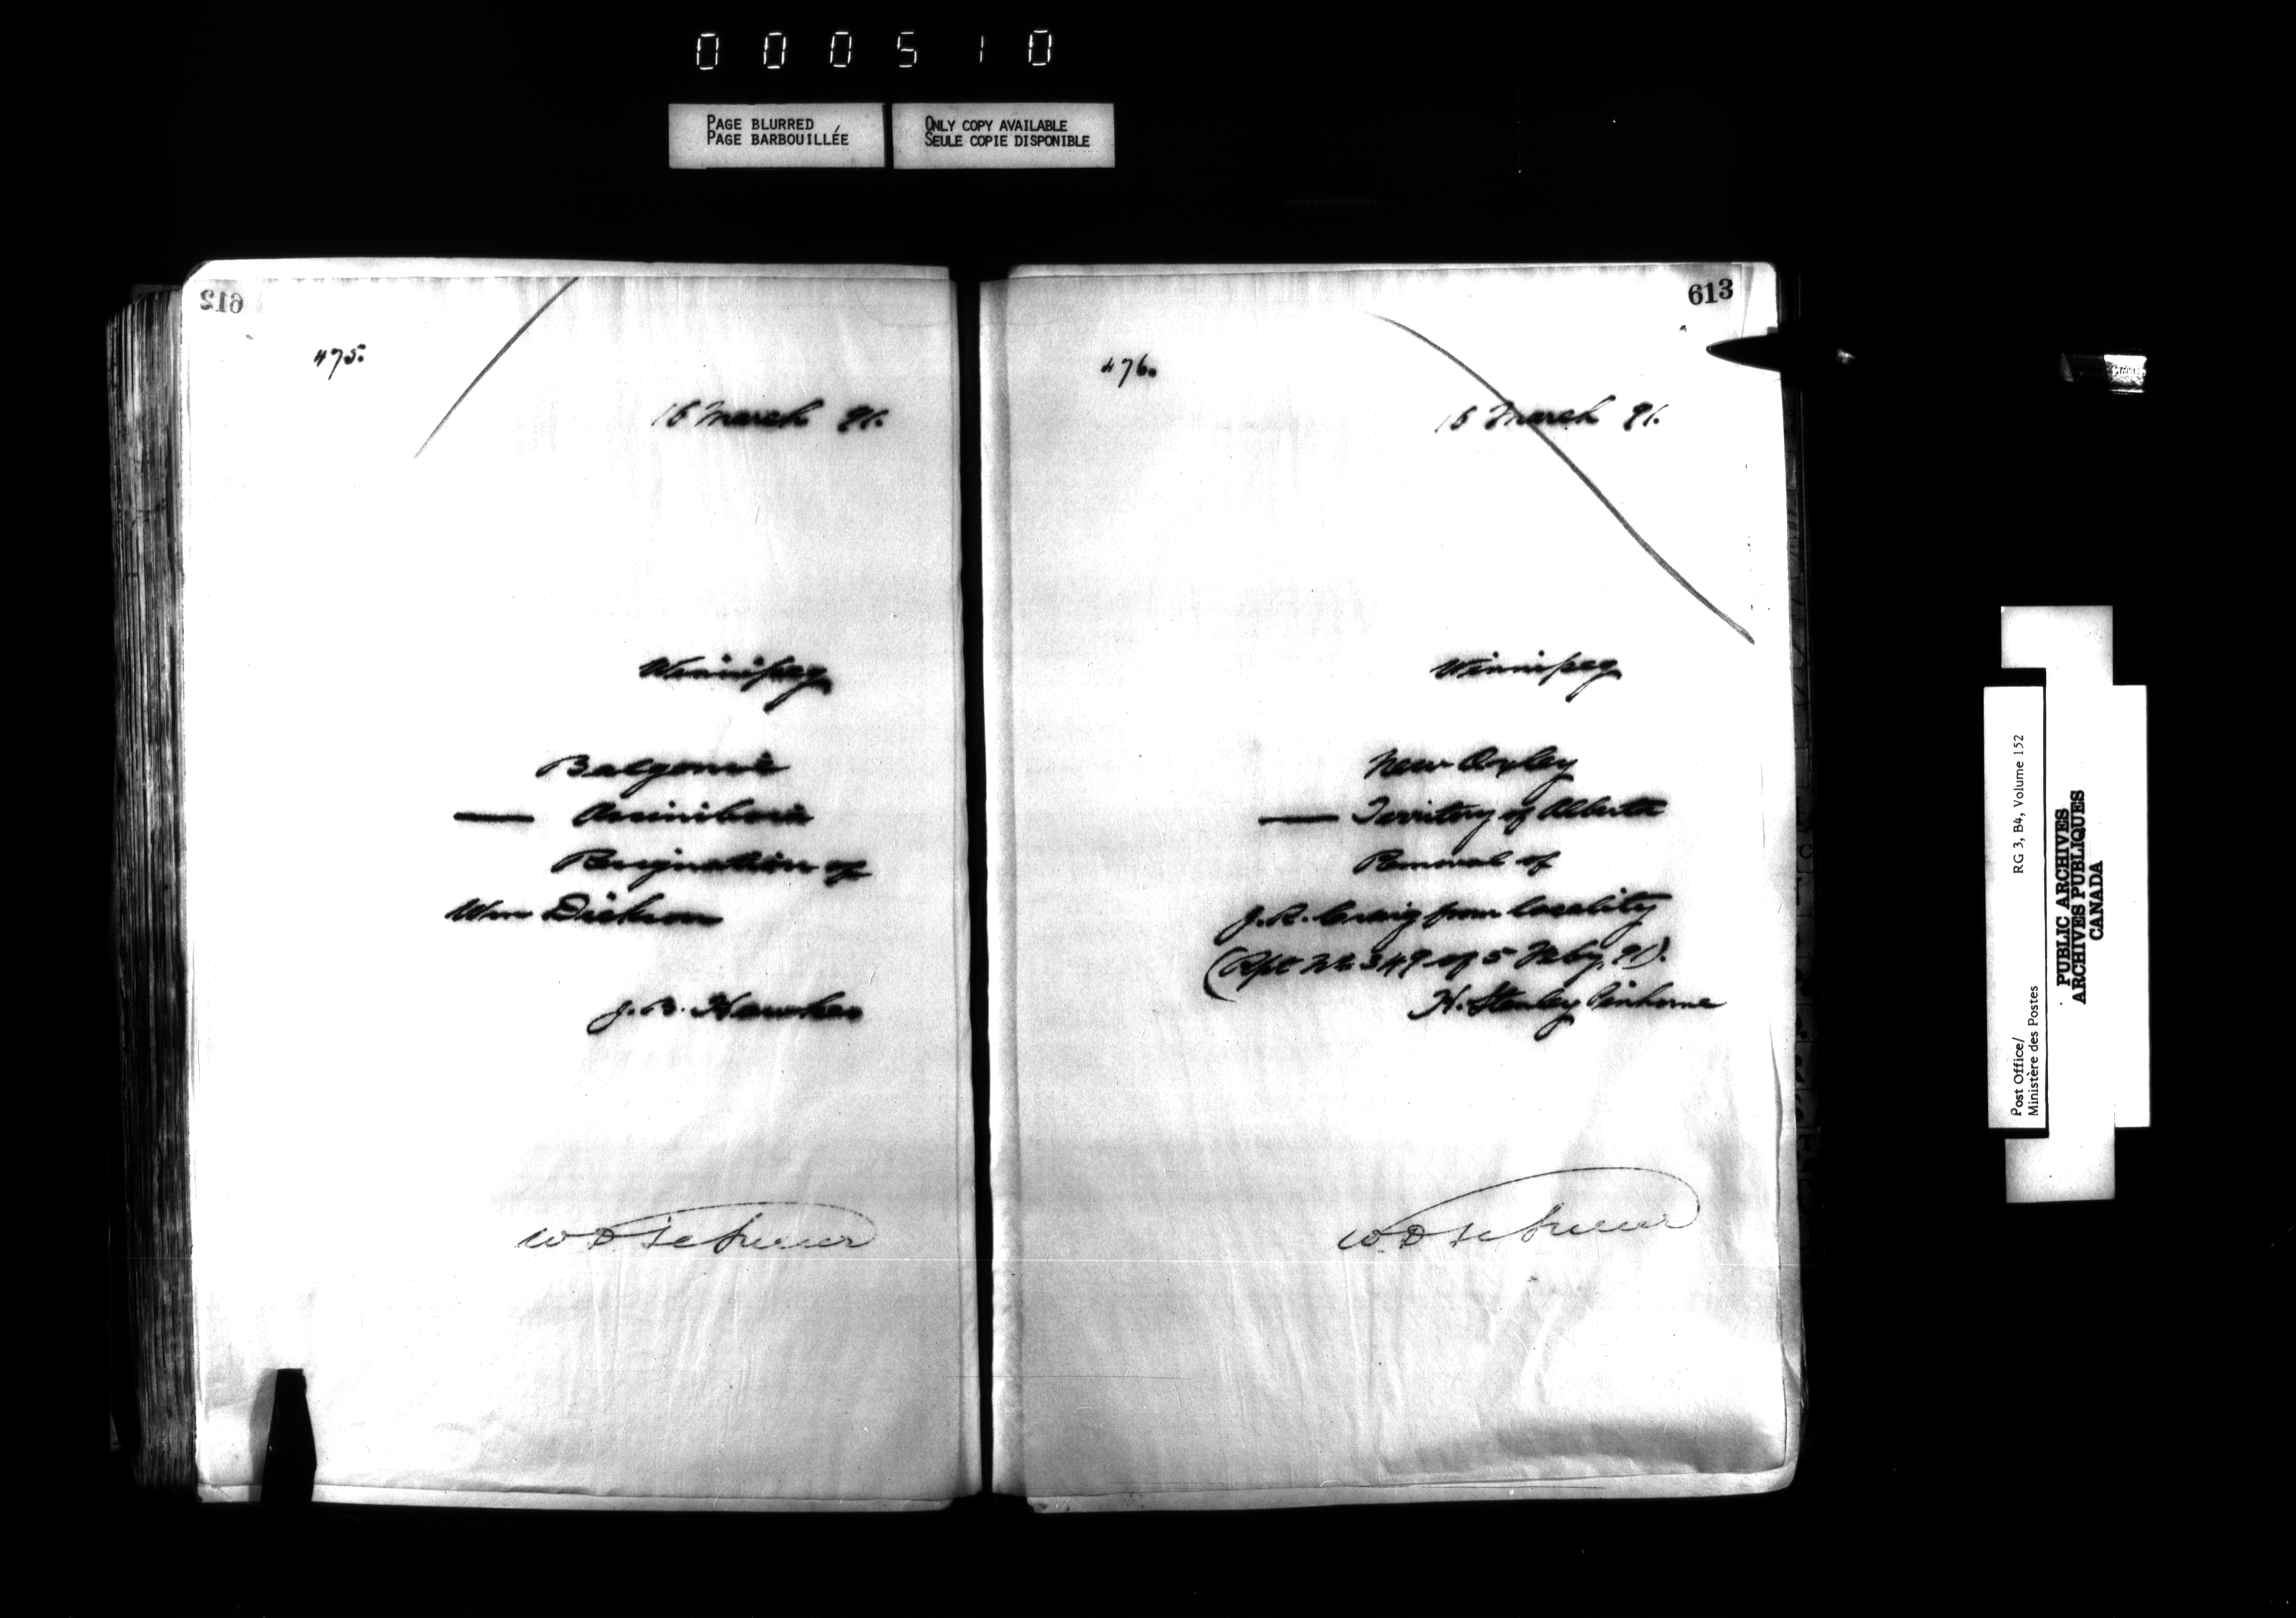 000510
PAGE BLURRED
PAGE BARBOUILLÉE
ONLY COPY AVAILABLE
SEULE COPIE DISPONIBLE
612
475.
March 91.
Winnipeg
Balgonie
— Assiniboia
Resignation of
Wm Dickson
J. B. Hawkes
613
476.
March 91.
Winnipeg
New Oxley
— Territory of Alberta
Removal of
J. R. Craig from locality
(Rpt No 349 of 5 Feby, 91).
H. Stanley Pinhorne
Post Office/
Ministère des Postes
RG 3, B4, Volume 152
PUBLIC ARCHIVES
ARCHIVES PUBLIQUES
CANADA